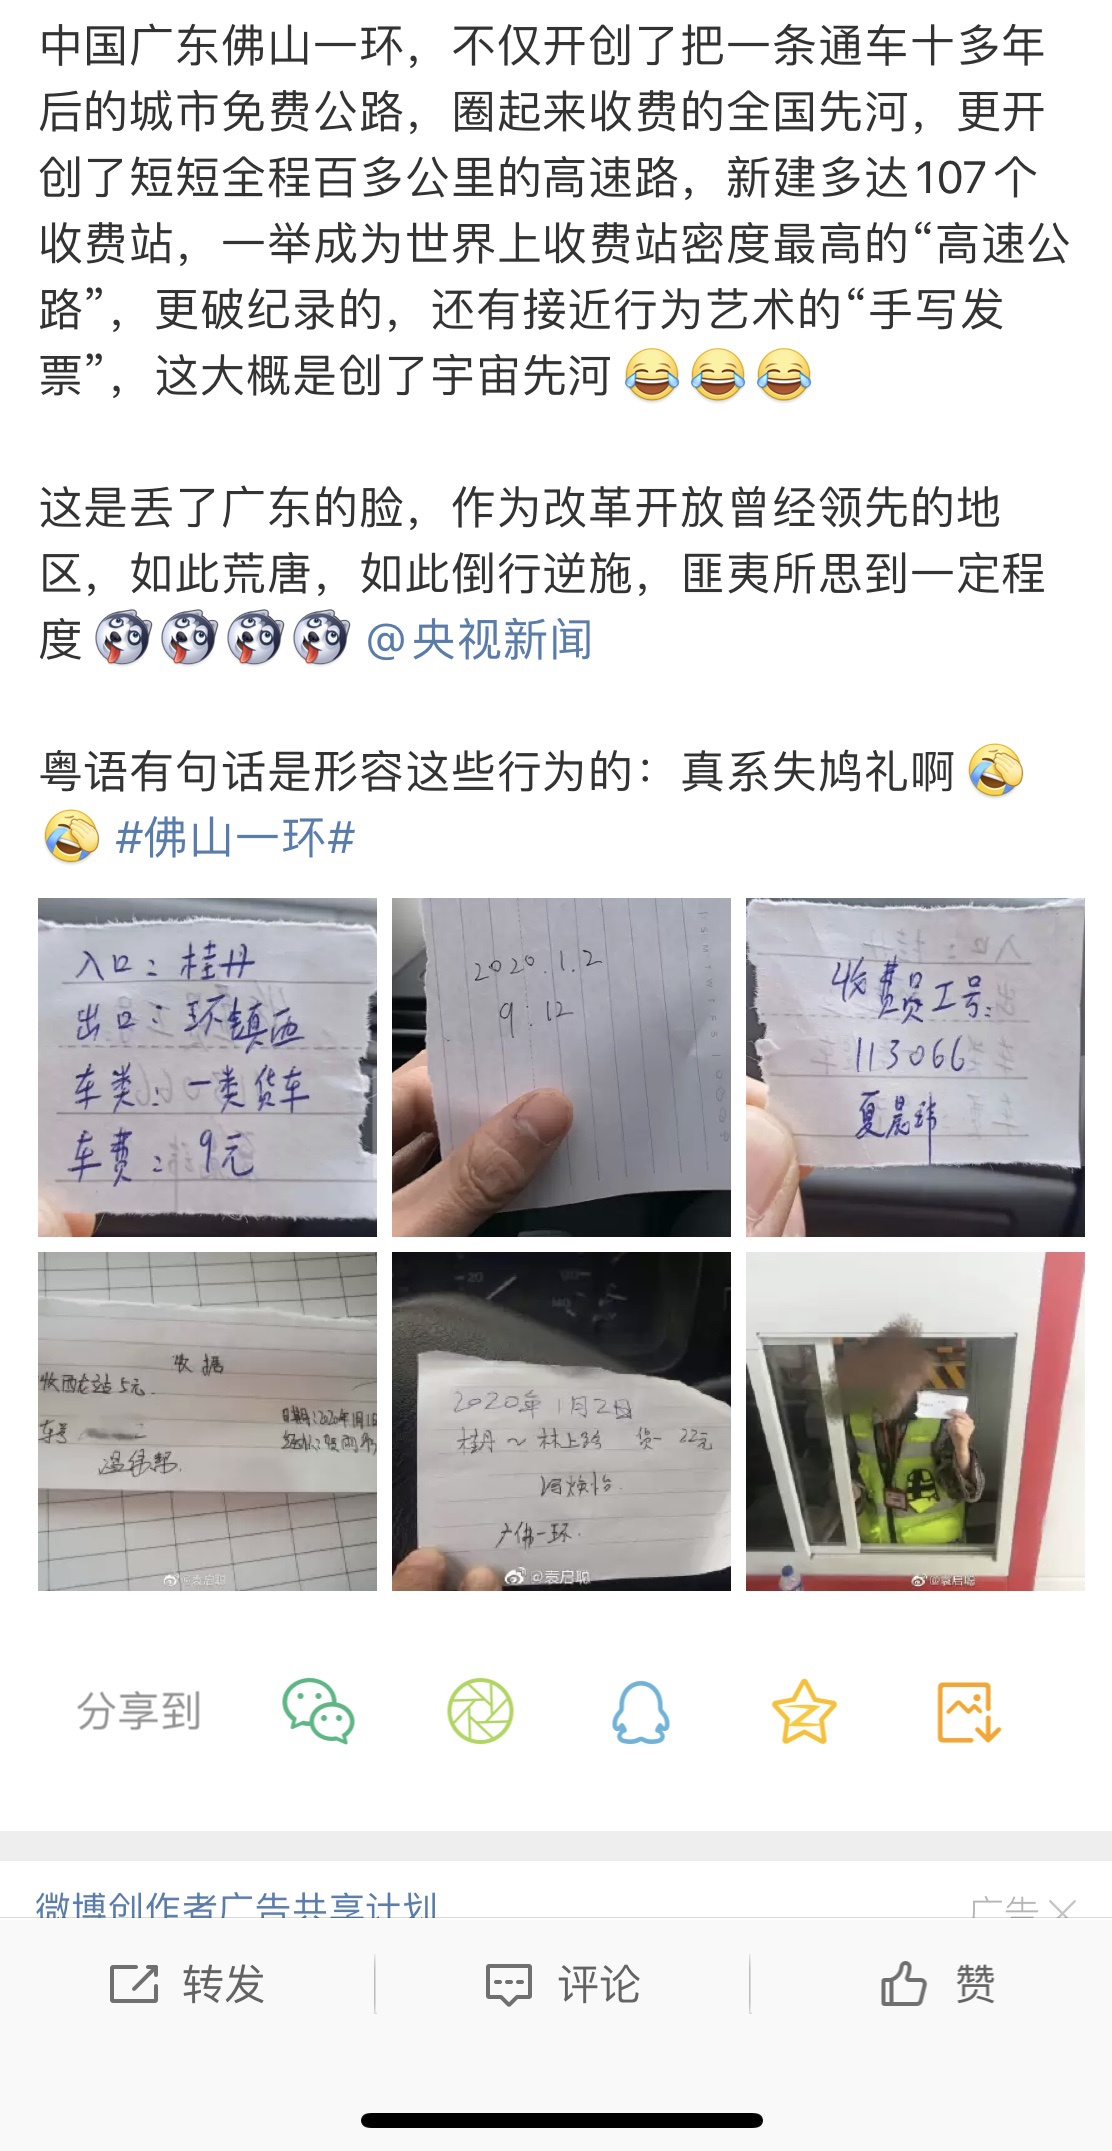 中国广东佛山一环，不仅开创了把一条通车十多年
后的城市免费公路，圈起来收费的全国先河，更开
创了短短全程百多公里的高速路，新建多达107个
收费站，一举成为世界上收费站密度最高的“高速公
路”，更破纪录的，还有接近行为艺术的“手写发
票”，这大概是创了宇宙先河
这是丢了广东的脸，作为改革开放曾经领先的地
区，如此荒唐，如此倒行逆施，匪夷所思到一定程
度 @央视新闻
粤语有句话是形容这些行为的：真系失鸠礼啊
#佛山一环#
入口：桂丹
出口：环镇西
车类：一类货车
车费：9元
2020.1.2
9:12
收费员工号：
113066
夏晨玮
收据
5元
车号
2020年1月2日
桂丹～林上路 货一 22元
广佛一环.
@袁启聪
@袁启聪
@袁启聪
分享到
微博创作者广告共享计划
广告
转发
评论
赞